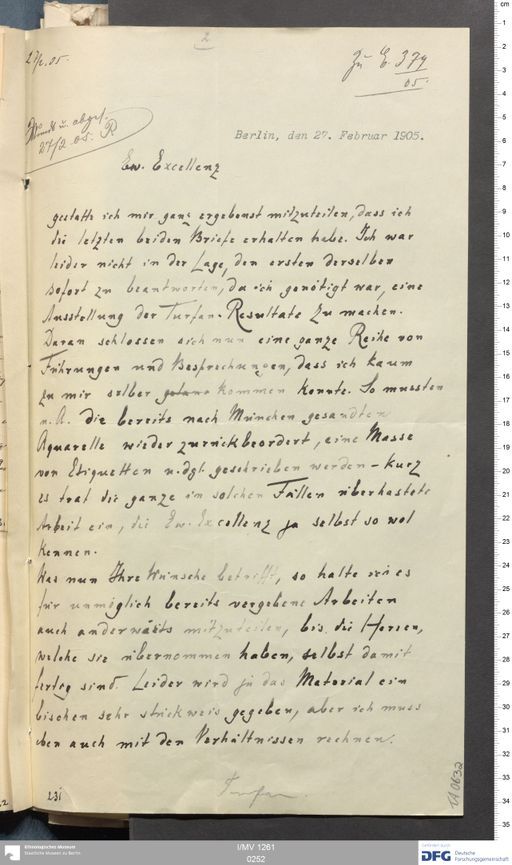 2
27/2.05.
Zu E. 379
05.
u. abges.
27/2.05. R
Berlin, den 27. Februar 1905.
Ew. Excellenz
gestatte ich mir ganz ergebenst mitzuteilen, dass ich
die letzten beiden Briefe erhalten habe. Ich war
leider nicht in der Lage, den ersten derselben
sofort zu beantworten, da ich genötigt war, eine
Ausstellung der Turfan-Resultate zu machen.
Daran schlossen sich nun eine ganze Reihe von
Führungen und Besprechungen, dass ich kaum
zu mir selber kommen konnte. So mussten
u. A. die bereits nach München gesandten
Aquarelle wieder zurückbeordert, eine Masse
von Etiquetten u. dgl. geschrieben werden – kurz
es trat die ganze in solchen Fällen überhastete
Arbeit ein, die Ew. Excellenz ja selbst so wol
kennen.
Was nun Ihre Wünsche betrifft, so halte ich es
für unmöglich bereits vergebene Arbeiten
auch anderwärts mitzuteilen, bis die Herren,
welche sie übernommen haben, selbst damit
fertig sind. Leider wird ja das Material ein
bischen sehr stückweis gegeben, aber ich muss
eben auch mit den Verhältnissen rechnen.
Turfan.
231
A0632
Ethnologisches Museum
Staatliche Museen zu Berlin
I/MV 1261
0252
Gefördert durch
DFG Deutsche
Forschungsgemeinschaft